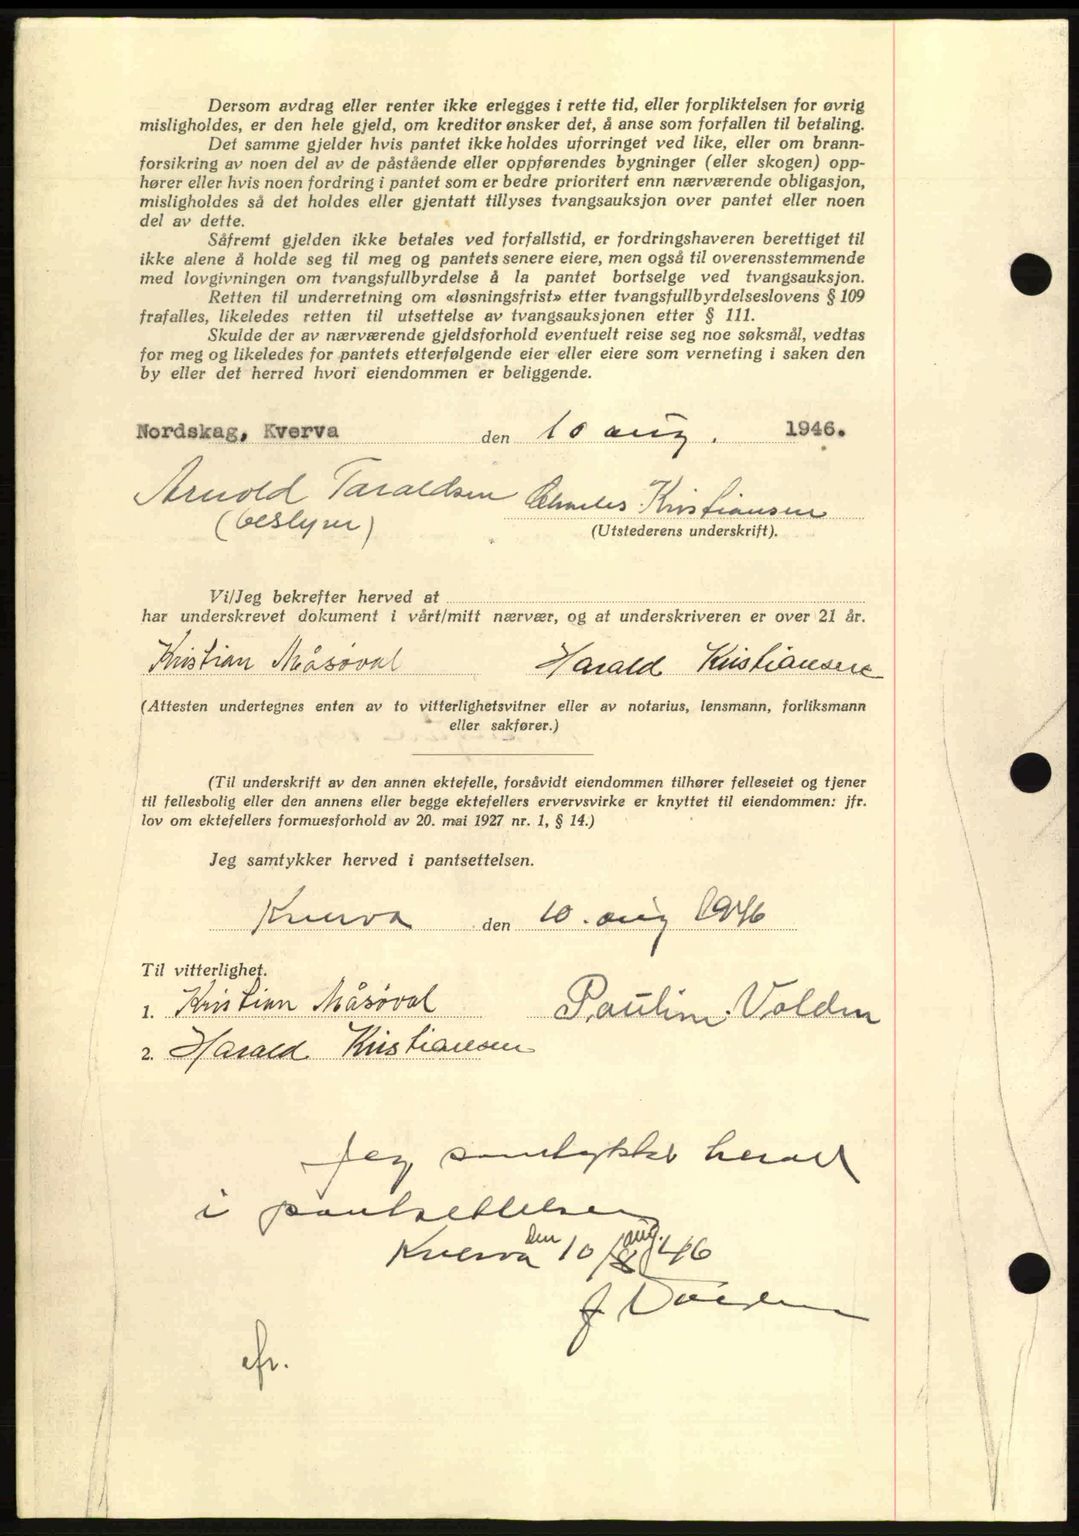 Dersom avdrag eller renter ikke erlegges i rette tid, eller forpliktelsen for øvrig
misligholdes, er den hele gjeld, om kreditor ønsker det, å anse som forfallen til betaling.
Det samme gjelder hvis pantet ikke holdes uforringet ved like, eller om brann-
forsikring av noen del av de påstående eller oppførendes bygninger (eller skogen) opp-
hører eller hvis noen fordring i pantet som er bedre prioritert enn nærværende obligasjon,
misligholdes så det holdes eller gjentatt tillyses tvangsauksjon over pantet eller noen
del av dette.
Såfremt gjelden ikke betales ved forfallstid, er fordringshaveren berettiget til
ikke alene å holde seg til meg og pantets senere eiere, men også til overensstemmende
med lovgivningen om tvangsfullbyrdelse å la pantet bortselge ved tvangsauksjon.
Retten til underretning om «løsningsfrist» etter tvangsfullbyrdelseslovens § 109
frafalles, likeledes retten til utsettelse av tvangsauksjonen etter § 111.
Skulde der av nærværende gjeldsforhold eventuelt reise seg noe søksmål, vedtas
for meg og likeledes for pantets etterfølgende eier eller eiere som verneting i saken den
by eller det herred hvori eiendommen er beliggende.
Nordskag, Kverva den 10 aug. 1946.
Arnold Taraldsen Charles Kristiansen
(Utstederens underskrift).
Vi/Jeg bekrefter herved at
har underskrevet dokument i vårt/mitt nærvær, og at underskriveren er over 21 år.
Kristian Måsøval Harald Kristiansen
(Attesten undertegnes enten av to vitterlighetsvitner eller av notarius, lensmann, forliksmann
eller sakfører.)
(Til underskrift av den annen ektefelle, forsåvidt eiendommen tilhører felleseiet og tjener
til fellesbolig eller den annens eller begge ektefellers ervervsvirke er knyttet til eiendommen: jfr.
lov om ektefellers formuesforhold av 20. mai 1927 nr. 1, § 14.)
Jeg samtykker herved i pantsettelsen.
Kverva den 10. aug 1946
Til vitterlighet.
1. Kristian Måsøval Pauline Volden
2. Harald Kristiansen
Jeg samtykker herved
i pantsettelsen
Kverva den 10/8 aug. 46
J. Volden